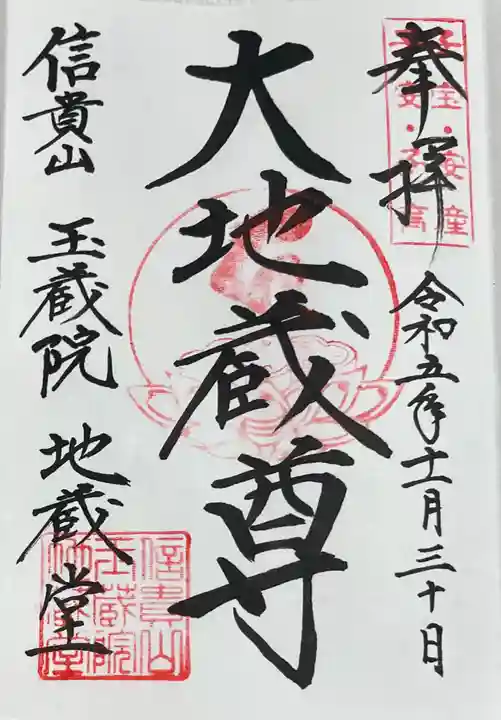 奉拝
令和五年十一月三十日
大地蔵尊
信貴山 玉蔵院 地蔵堂
信貴山
玉蔵院
地蔵堂